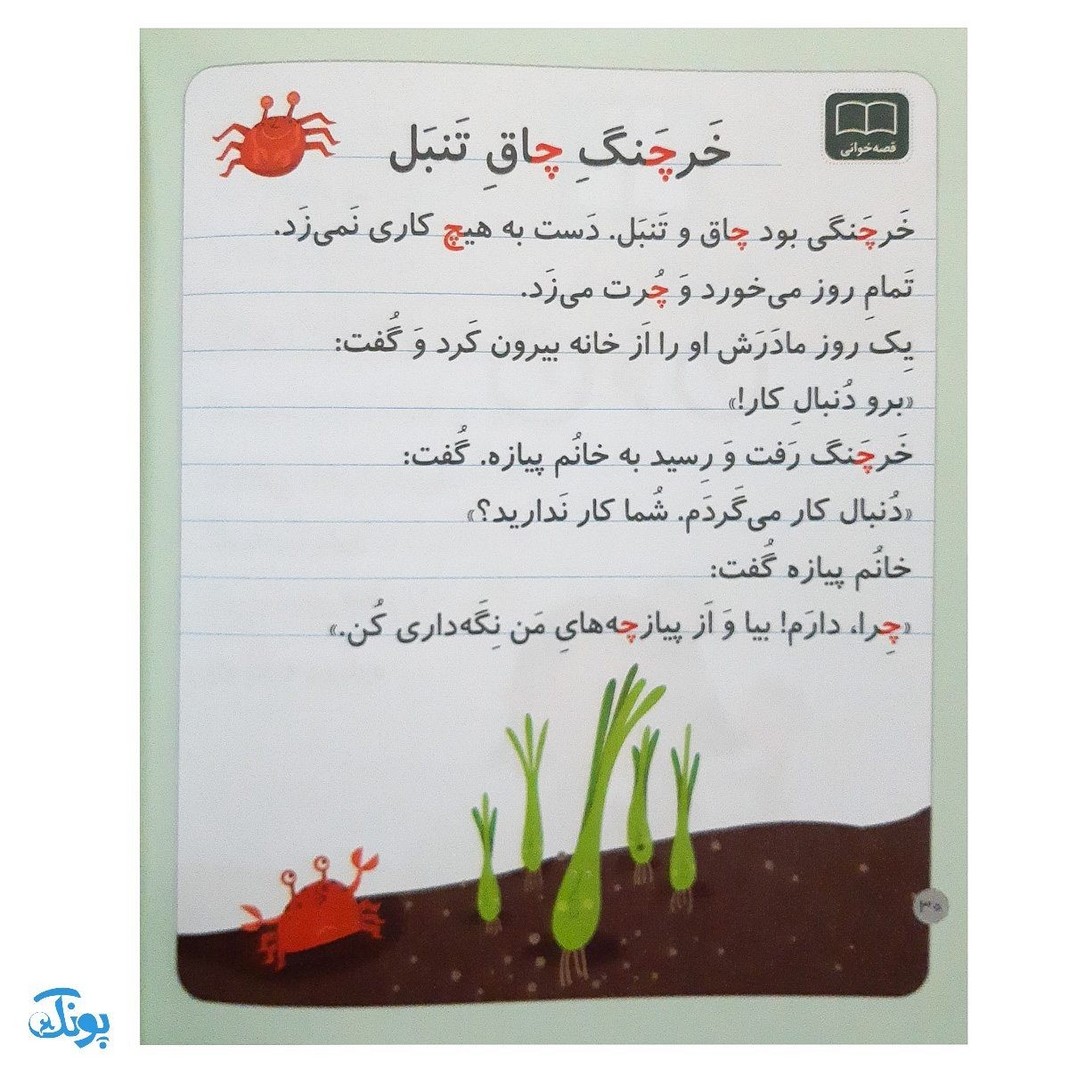 قصه‌خوانی
خَرچَنگِ چاقِ تَنبَل
خَرچَنگی بود چاق و تَنبَل. دَست به هیچ کاری نَمی‌زَد.
تَمامِ روز می‌خورد وَ چُرت می‌زَد.
یِک روز مادَرَش او را اَز خانه بیرون کَرد وَ گُفت:
«برو دُنبالِ کار!»
خَرچَنگ رَفت وَ رِسید به خانُم پیازه. گُفت:
«دُنبال کار می‌گَردَم. شُما کار نَدارید؟»
خانُم پیازه گُفت:
«چِرا، دارَم! بیا وَ اَز پیازچه‌هایِ مَن نِگَه‌داری کُن.»
۳۰
پونک